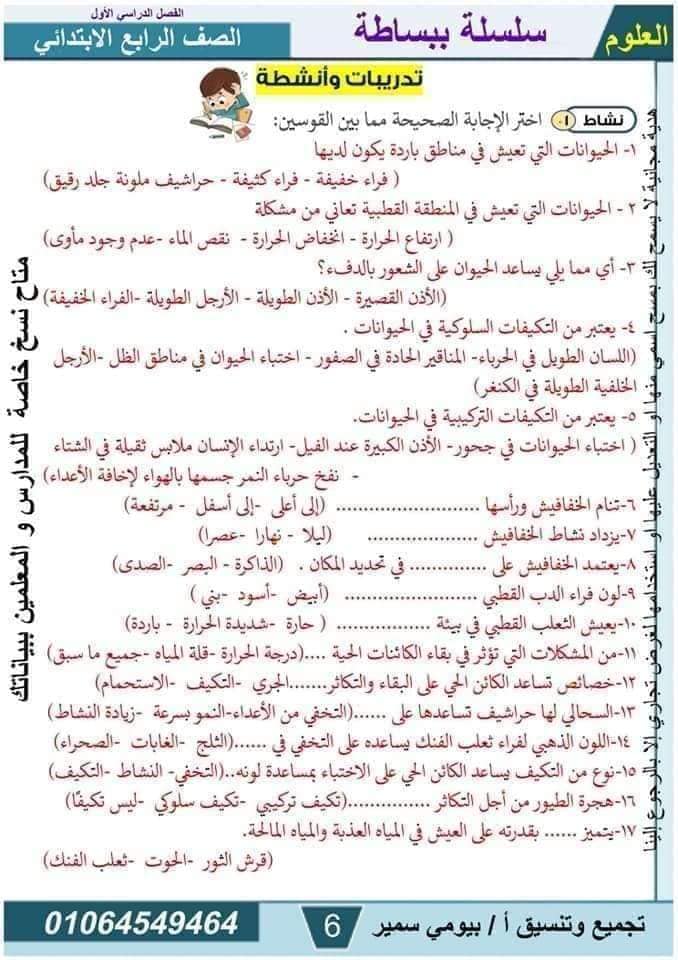 الفصل الدراسي الأول
العلوم
سلسلة ببساطة
الصف الرابع الابتدائي
تدريبات وأنشطة
نشاط ٠١ اختر الإجابة الصحيحة مما بين القوسين:
١- الحيوانات التي تعيش في مناطق باردة يكون لديها
( فراء خفيفة - فراء كثيفة - حراشيف ملونة جلد رقيق)
٢ - الحيوانات التي تعيش في المنطقة القطبية تعاني من مشكلة
( ارتفاع الحرارة - انخفاض الحرارة - نقص الماء -عدم وجود مأوى)
٣- أي مما يلي يساعد الحيوان على الشعور بالدفء؟
(الأذن القصيرة - الأذن الطويلة - الأرجل الطويلة -الفراء الخفيفة)
٤- يعتبر من التكيفات السلوكية في الحيوانات .
(اللسان الطويل في الحرباء- المناقير الحادة في الصقور - اختباء الحيوان في مناطق الظل -الأرجل
الخلفية الطويلة في الكنغر)
٥- يعتبر من التكيفات التركيبية في الحيوانات.
( اختباء الحيوانات في جحور- الأذن الكبيرة عند الفيل- ارتداء الإنسان ملابس ثقيلة في الشتاء
- نفخ حرباء النمر جسمها بالهواء لإخافة الأعداء)
٦-تنام الخفافيش ورأسها ........................ (إلى أعلى -إلى أسفل - مرتفعة)
٧-يزداد نشاط الخفافيش .................... (ليلا - نهارا -عصرا)
٨-يعتمد الخفافيش على .............. في تحديد المكان . (الذاكرة - البصر -الصدى)
٩-لون فراء الدب القطبي ...................... (أبيض -أسود -بني )
١٠-يعيش الثعلب القطبي في بيئة ................ ( حارة -شديدة الحرارة - باردة)
١١-من المشكلات التي تؤثر في بقاء الكائنات الحية ....(درجة الحرارة -قلة المياه -جميع ما سبق)
١٢-خصائص تساعد الكائن الحي على البقاء والتكاثر.......(الجري -التكيف -الاستحمام)
١٣-السحالي لها حراشيف تساعدها على ......(التخفي من الأعداء-النمو بسرعة -زيادة النشاط)
١٤-اللون الذهبي لفراء ثعلب الفنك يساعده على التخفي في ......(الثلج -الغابات -الصحراء)
١٥-نوع من التكيف يساعد الكائن الحي على الاختباء بمساعدة لونه..(التخفي- النشاط -التكيف)
١٦-هجرة الطيور من أجل التكاثر ..............(تكيف تركيبي -تكيف سلوكي -ليس تكيفًا)
١٧-يتميز ...... بقدرته على العيش في المياه العذبة والمياه المالحة.
(قرش الثور -الحوت -ثعلب الفنك)
متاح نسخ خاصة للمدارس و المعلمين ببياناتك
هدية مجانية لا يسمح لك بمسح اسمي منها او التعديل عليها او استخدامها لغرض تجاري إلا بالرجوع إلينا
تجميع وتنسيق أ / بيومي سمير
6
01064549464